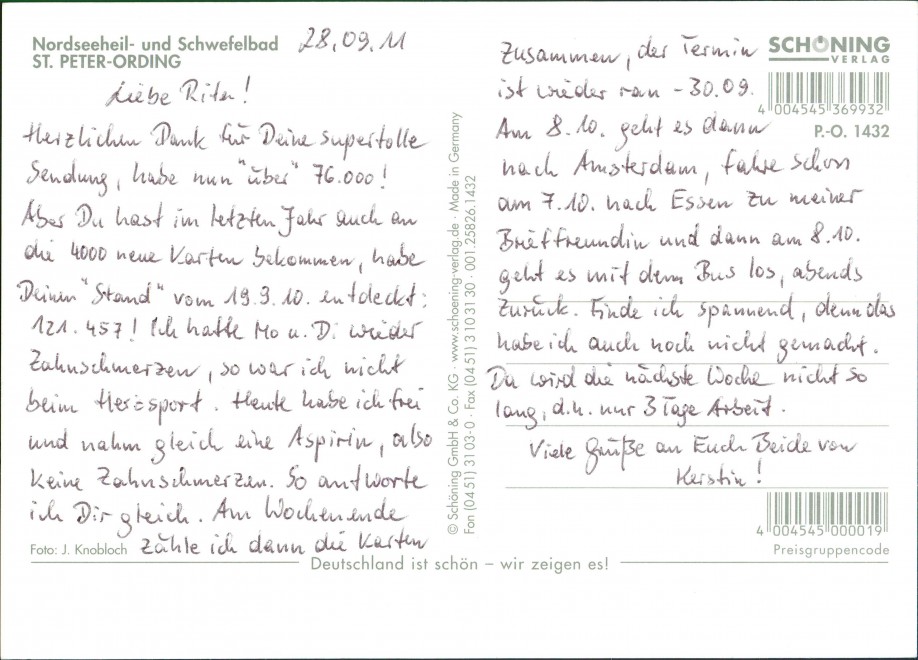 Nordseeheil- und Schwefelbad
ST. PETER-ORDING
28.09.11
Liebe Rita!
Herzlichen Dank für Deine supertolle
Sendung, habe nun "über" 76.000!
Aber Du hast im letzten Jahr auch an
die 4000 neue Karten bekommen, habe
Deinen "Stand" vom 19.9.10. entdeckt:
121.457! Ich hatte Mo u. Di wieder
Zahnschmerzen, so war ich nicht
beim Herzsport. Heute habe ich frei
und nahm gleich eine Aspirin, also
keine Zahnschmerzen. So antworte
ich Dir gleich. Am Wochenende
zähle ich dann die Karten
Foto: J. Knobloch
© Schöning GmbH & Co. KG · www.schoening-verlag.de · Made in Germany
Fon (04 51) 31 03-0 · Fax (04 51) 3 10 31 30 · 001.25826.1432
zusammen, der Termin
ist wieder ran - 30.09.
Am 8.10. geht es dann
nach Amsterdam, fahre schon
am 7.10. nach Essen zu meiner
Brieffreundin und dann am 8.10.
geht es mit dem Bus los, abends
zurück. Finde ich spannend, denn das
habe ich auch noch nicht gemacht.
Da wird die nächste Woche nicht so
lang, d.h. nur 3 Tage Arbeit.
Viele Grüße an Euch Beide von
Kerstin!
SCHÖNING
VERLAG
4 004545 369932
P.-O. 1432
4 004545 000019
Preisgruppencode
Deutschland ist schön – wir zeigen es!